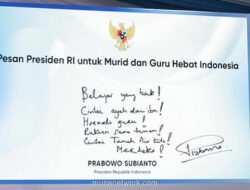 Pesan Presiden RI untuk Murid dan Guru Hebat Indonesia
Belajar yang baik!
Cintai ayah dan ibu!
Hormati guru!
Rukun sama teman!
Cintai Tanah Air kita!
Merdeka!
PRABOWO SUBIANTO
Presiden Republik Indonesia
murianetwork.com